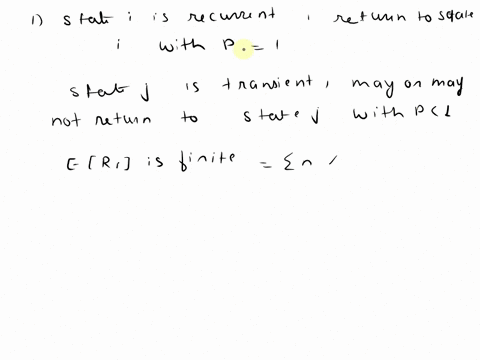 1) state i is recurrent , return to state
i with P = 1
state j is transient, may or may
not return to state j with P<1
E[R,] is finite = Σ n